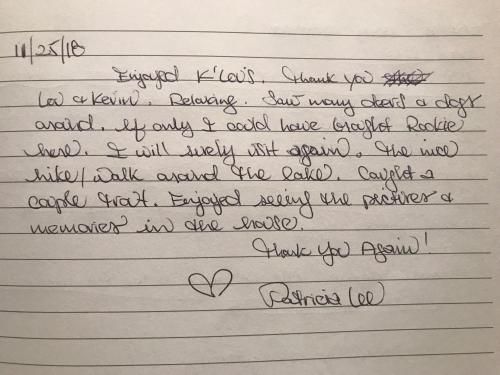 11/25/18
Enjoyed K'Lou's. Thank you
Lou & Kevin. Relaxing. Saw many deers & dogs
around. If only I could have brought Rockie
here. I will surely visit again. The nice
hike/walk around the lake. Caught a
couple trout. Enjoyed seeing the pictures &
memories in the house.
Thank You Again!
Patricia Lee